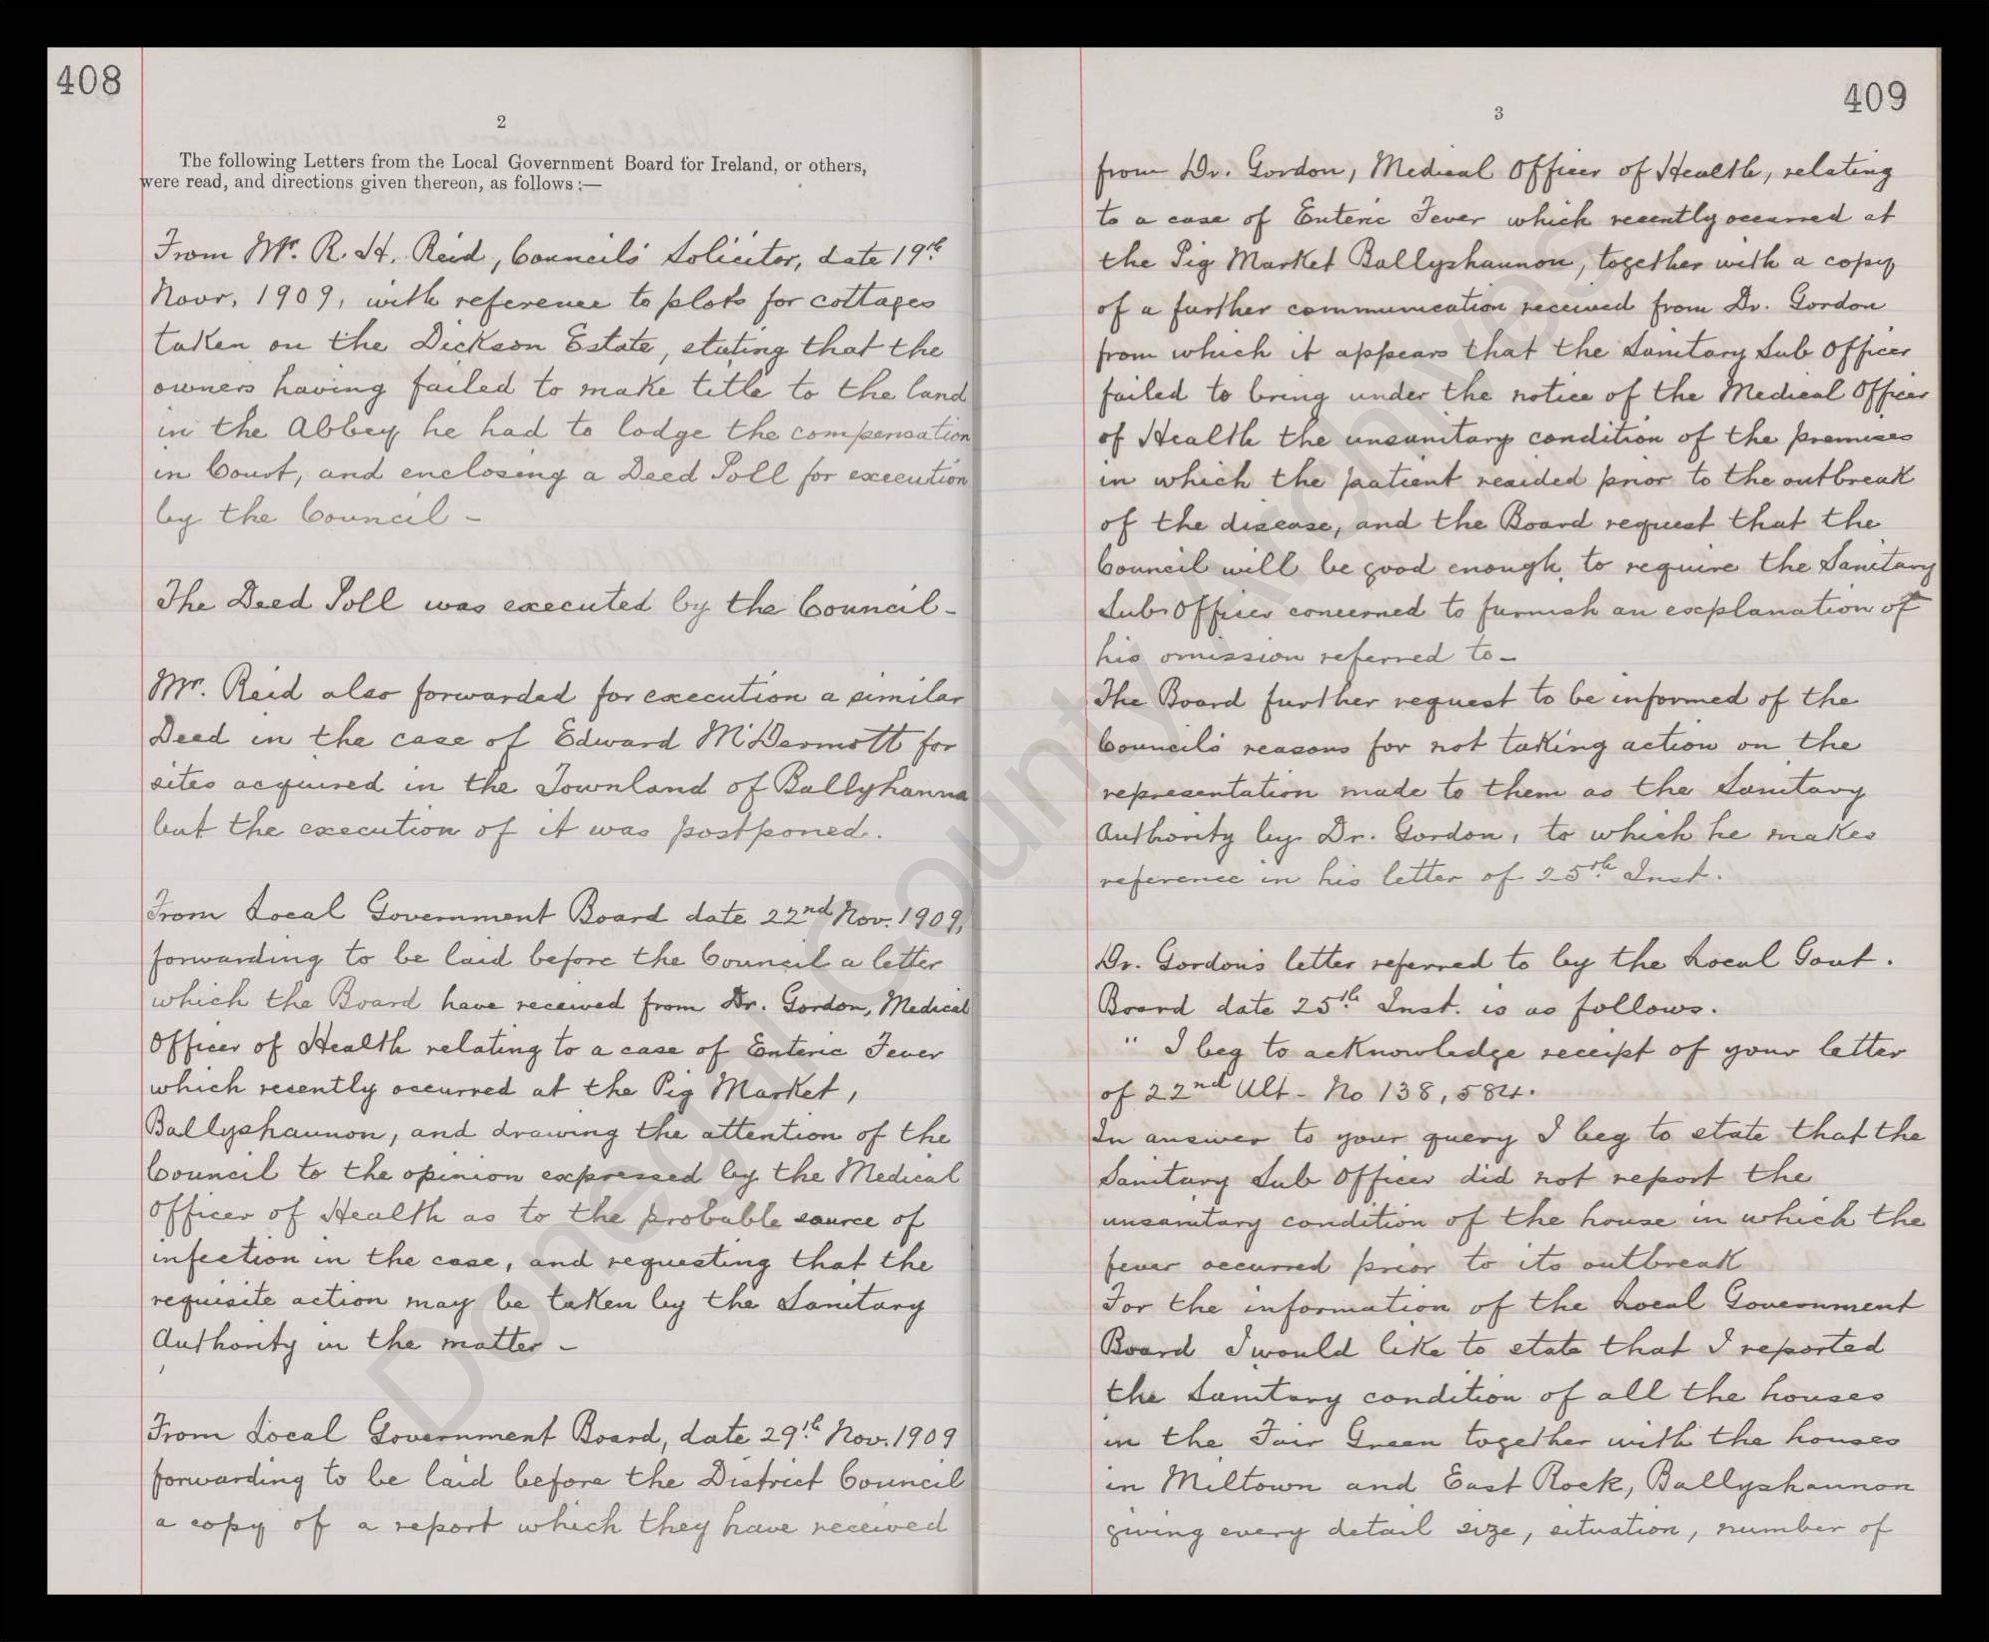 408
2
The following Letters from the Local Government Board for Ireland, or others,
were read, and directions given thereon, as follows :—
From Mr. R. H. Reid, Council's Solicitor, date 19th
Novr, 1909, with reference to plots for cottages
taken on the Dickson Estate, stating that the
owners having failed to make title to the land
in the Abbey he had to lodge the compensation
in Court, and enclosing a Deed Poll for execution
by the Council -
The Deed Poll was executed by the Council -
Mr. Reid also forwarded for execution a similar
Deed in the case of Edward McDermott for
sites acquired in the Townland of Ballyhanna
but the execution of it was postponed.
From Local Government Board date 22nd Nov. 1909,
forwarding to be laid before the Council a letter
which the Board have received from Dr. Gordon, Medical
Officer of Health relating to a case of Enteric Fever
which recently occurred at the Pig Market,
Ballyshannon, and drawing the attention of the
Council to the opinion expressed by the Medical
Officer of Health as to the probable source of
infection in the case, and requesting that the
requisite action may be taken by the Sanitary
Authority in the matter -
From Local Government Board, date 29th Nov. 1909
forwarding to be laid before the District Council
a copy of a report which they have received
409
3
from Dr. Gordon, Medical Officer of Health, relating
to a case of Enteric Fever which recently occurred at
the Pig Market Ballyshannon, together with a copy
of a further communication received from Dr. Gordon
from which it appears that the Sanitary Sub Officer
failed to bring under the notice of the Medical Officer
of Health the unsanitary condition of the premises
in which the patient resided prior to the outbreak
of the disease, and the Board request that the
Council will be good enough to require the Sanitary
Sub Officer concerned to furnish an explanation of
his omission referred to -
The Board further request to be informed of the
Council's reasons for not taking action on the
representation made to them as the Sanitary
Authority by Dr. Gordon, to which he makes
reference in his letter of 25th Inst.
Dr. Gordon's letter referred to by the Local Govt.
Board date 25th Inst. is as follows.
" I beg to acknowledge receipt of your letter
of 22nd Ult - No 138,584.
In answer to your query I beg to state that the
Sanitary Sub Officer did not report the
unsanitary condition of the house in which the
fever occurred prior to its outbreak
For the information of the Local Government
Board I would like to state that I reported
the Sanitary condition of all the houses
in the Fair Green together with the houses
in Miltown and East Rock, Ballyshannon
giving every detail size, situation, number of
Donegal County Archives